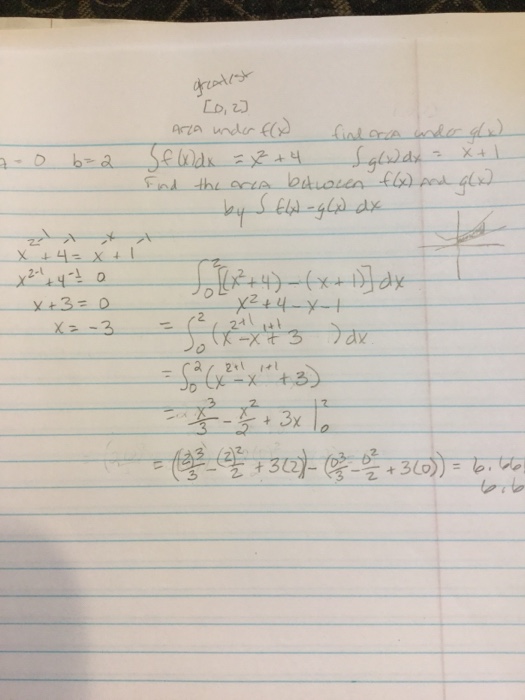 greatest
[0, 2]
Area under f(x) find area under g(x)
a = 0 b = 2 ∫f(x)dx = x² + 4 ∫g(x)dx = x + 1
Find the area between f(x) and g(x)
by ∫ f(x) - g(x) dx
x² + 4 = x + 1
x²⁻¹ + 4 - 1 = 0
x + 3 = 0
x = -3
∫₀² [(x² + 4) - (x + 1)] dx
x² + 4 - x - 1
= ∫₀² (x²⁺¹ - x¹⁺¹ + 3 ) dx
= ∫₀² (x²⁺¹ - x¹⁺¹ + 3)
= x³/3 - x²/2 + 3x |₀²
= ((2)³/3 - (2)²/2 + 3(2)) - (0³/3 - 0²/2 + 3(0)) = 6.66
6.6